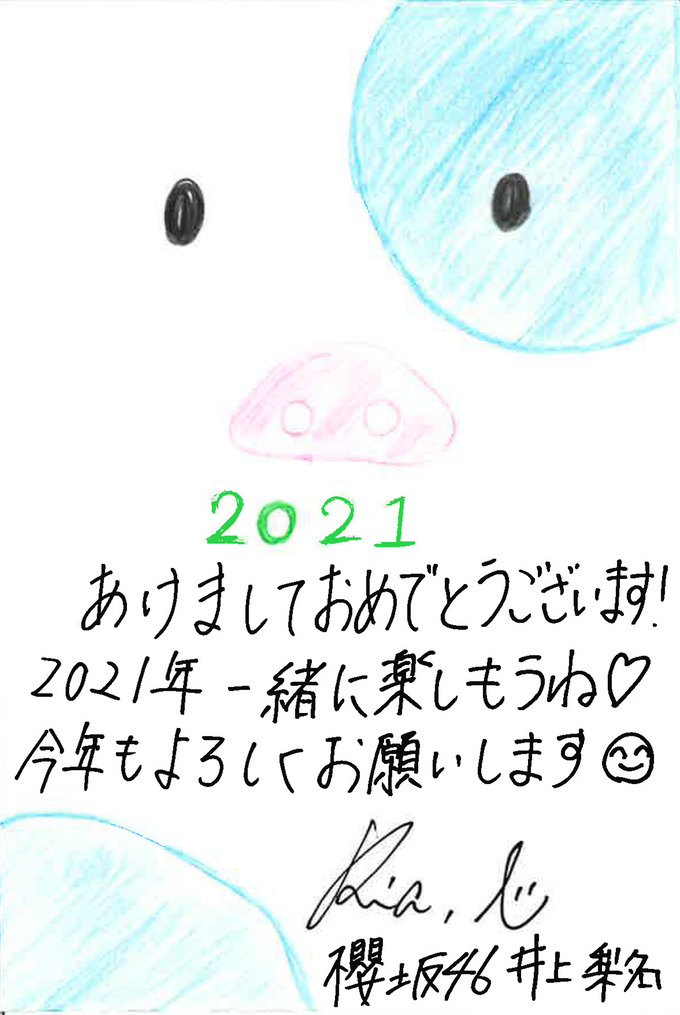 2021
あけましておめでとうございます!
2021年 一緒に楽しもうね♡
今年もよろしくお願いします😊
Ria.
櫻坂46 井上 梨名